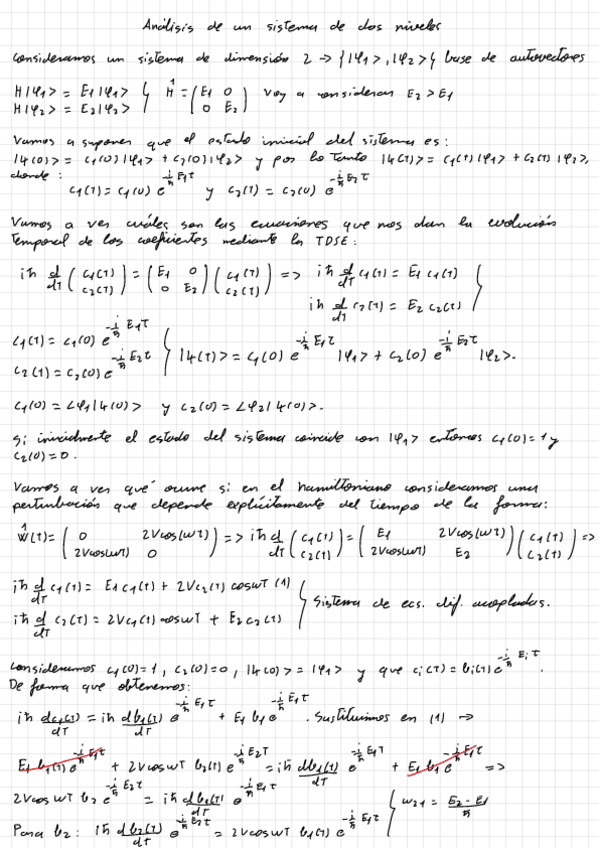 Análisis de un sistema de dos niveles
Consideramos un sistema de dimensión 2 → {|φ1>, |φ2>} base de autovectores
H|φ1> = E1|φ1>
H|φ2> = E2|φ2> } Ĥ = (E1 0 / 0 E2) Voy a considerar E2 > E1
Vamos a suponer que el estado inicial del sistema es:
|ψ(0)> = c1(0)|φ1> + c2(0)|φ2> y por lo tanto |ψ(t)> = c1(t)|φ1> + c2(t)|φ2>,
donde:
c1(t) = c1(0) e^{-i/ħ E1t} y c2(t) = c2(0) e^{-i/ħ E2t}
Vamos a ver cuáles son las ecuaciones que nos dan la evolución
temporal de los coeficientes mediante la TDSE:
iħ d/dt (c1(t) / c2(t)) = (E1 0 / 0 E2) (c1(t) / c2(t)) => iħ d/dt c1(t) = E1 c1(t)
iħ d/dt c2(t) = E2 c2(t) }
c1(t) = c1(0) e^{-i/ħ E1t}
c2(t) = c2(0) e^{-i/ħ E2t} } |ψ(t)> = c1(0) e^{-i/ħ E1t} |φ1> + c2(0) e^{-i/ħ E2t} |φ2>.
c1(0) = <φ1|ψ(0)> y c2(0) = <φ2|ψ(0)>.
Si inicialmente el estado del sistema coincide con |φ1> entonces c1(0) = 1 y
c2(0) = 0.
Vamos a ver qué ocurre si en el hamiltoniano consideramos una
perturbación que depende explícitamente del tiempo de la forma:
Ŵ(t) = (0 2Vcos(ωt) / 2Vcos(ωt) 0) => iħ d/dt (c1(t) / c2(t)) = (E1 2Vcos(ωt) / 2Vcos(ωt) E2) (c1(t) / c2(t)) =>
iħ d/dt c1(t) = E1 c1(t) + 2V c2(t) cosωt (1)
iħ d/dt c2(t) = 2V c1(t) cosωt + E2 c2(t) } Sistema de ecs. dif. acopladas.
Consideramos c1(0) = 1, c2(0) = 0, |ψ(0)> = |φ1> y que ci(t) = bi(t) e^{-i/ħ Eit}.
De forma que obtenemos:
iħ dc1(t)/dt = iħ db1(t)/dt e^{-i/ħ E1t} + E1 b1 e^{-i/ħ E1t}. Sustituimos en (1) →
E1 b1(t) e^{-i/ħ E1t} + 2V cosωt b2(t) e^{-i/ħ E2t} = iħ db1(t)/dt e^{-i/ħ E1t} + E1 b1 e^{-i/ħ E1t} =>
2V cos ωt b2 e^{-i/ħ E2t} = iħ db1(t)/dt e^{-i/ħ E1t}
Para b2: iħ db2(t)/dt e^{-i/ħ E2t} = 2V cosωt b1(t) e^{-i/ħ E1t} { ω21 = (E2 - E1)/ħ